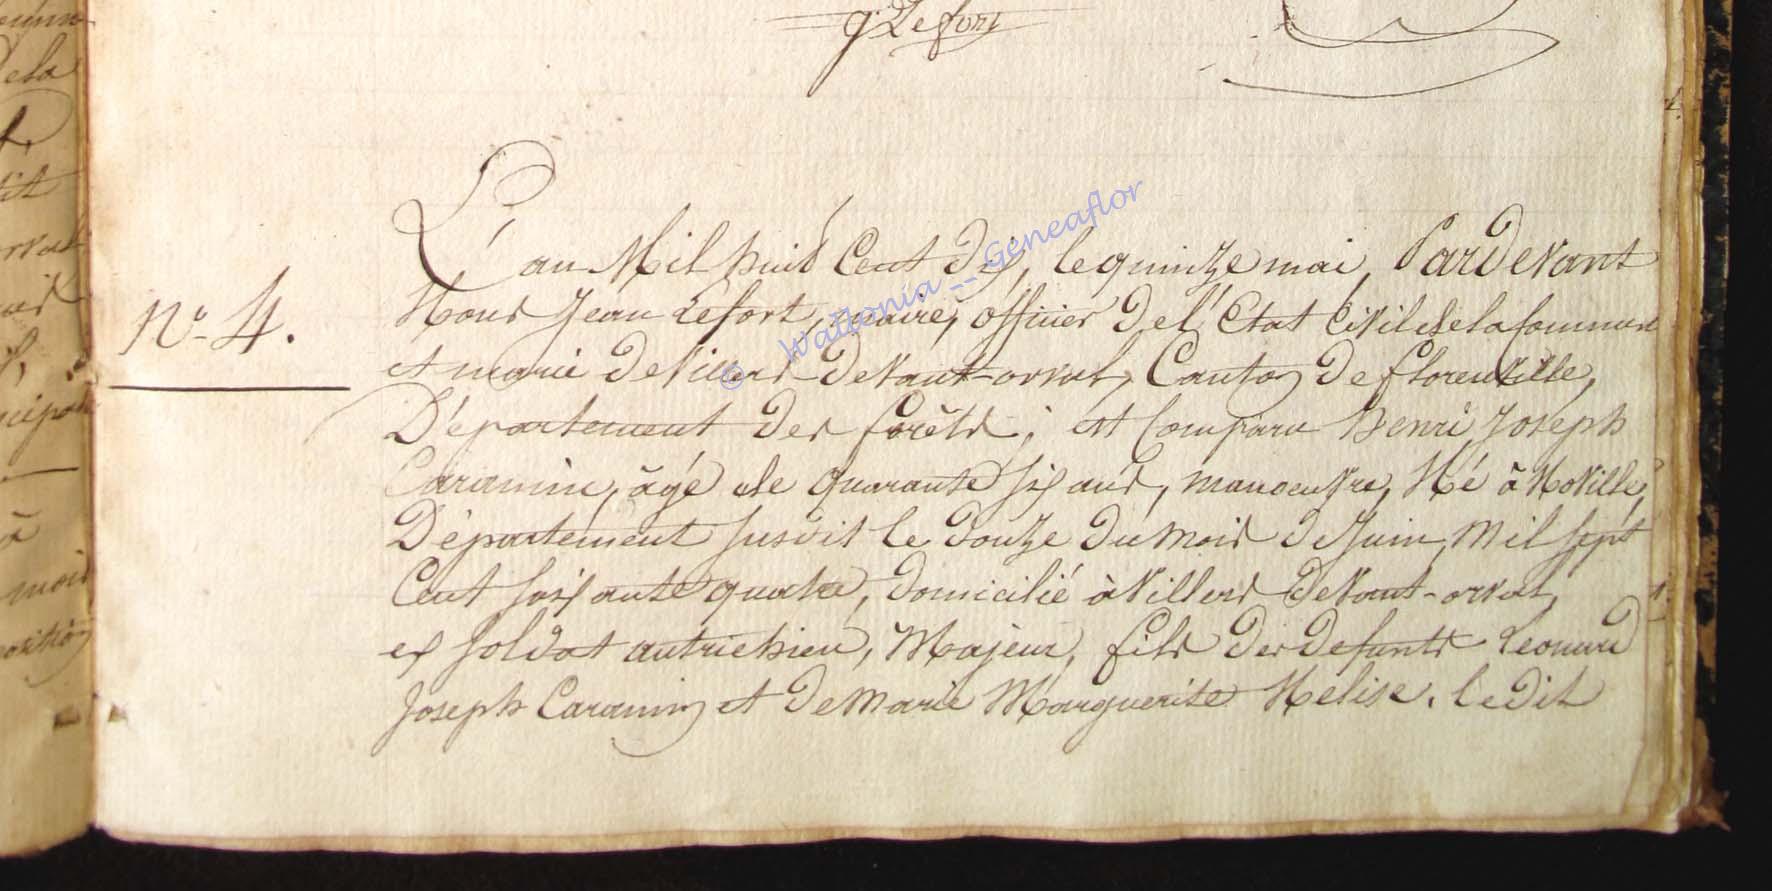 J. Lefort
N.° 4.
L'an Mil huit Cent dix, le quinze mai, Pardevant
Nous Jean Lefort, maire, officier de l'Etat Civil de la Commune
et mairie de Villers-devant-orval, Canton de florenville,
Département des forêts; est Comparu henri Joseph
Caramin, âgé de quarante six ans, manoeuvre, Né à Noville,
Département susdit le douze du mois de Juin, mil sept
Cent soixante quatre, domicilié à Villers devant-orval,
ex soldat autrichien, Majeur, fils des defunts Leonard
Joseph Caramin et de marie Marguerite Helise. le dit
© Wallonia -- Geneaflor
dela
dit
orval
moi
à
mois